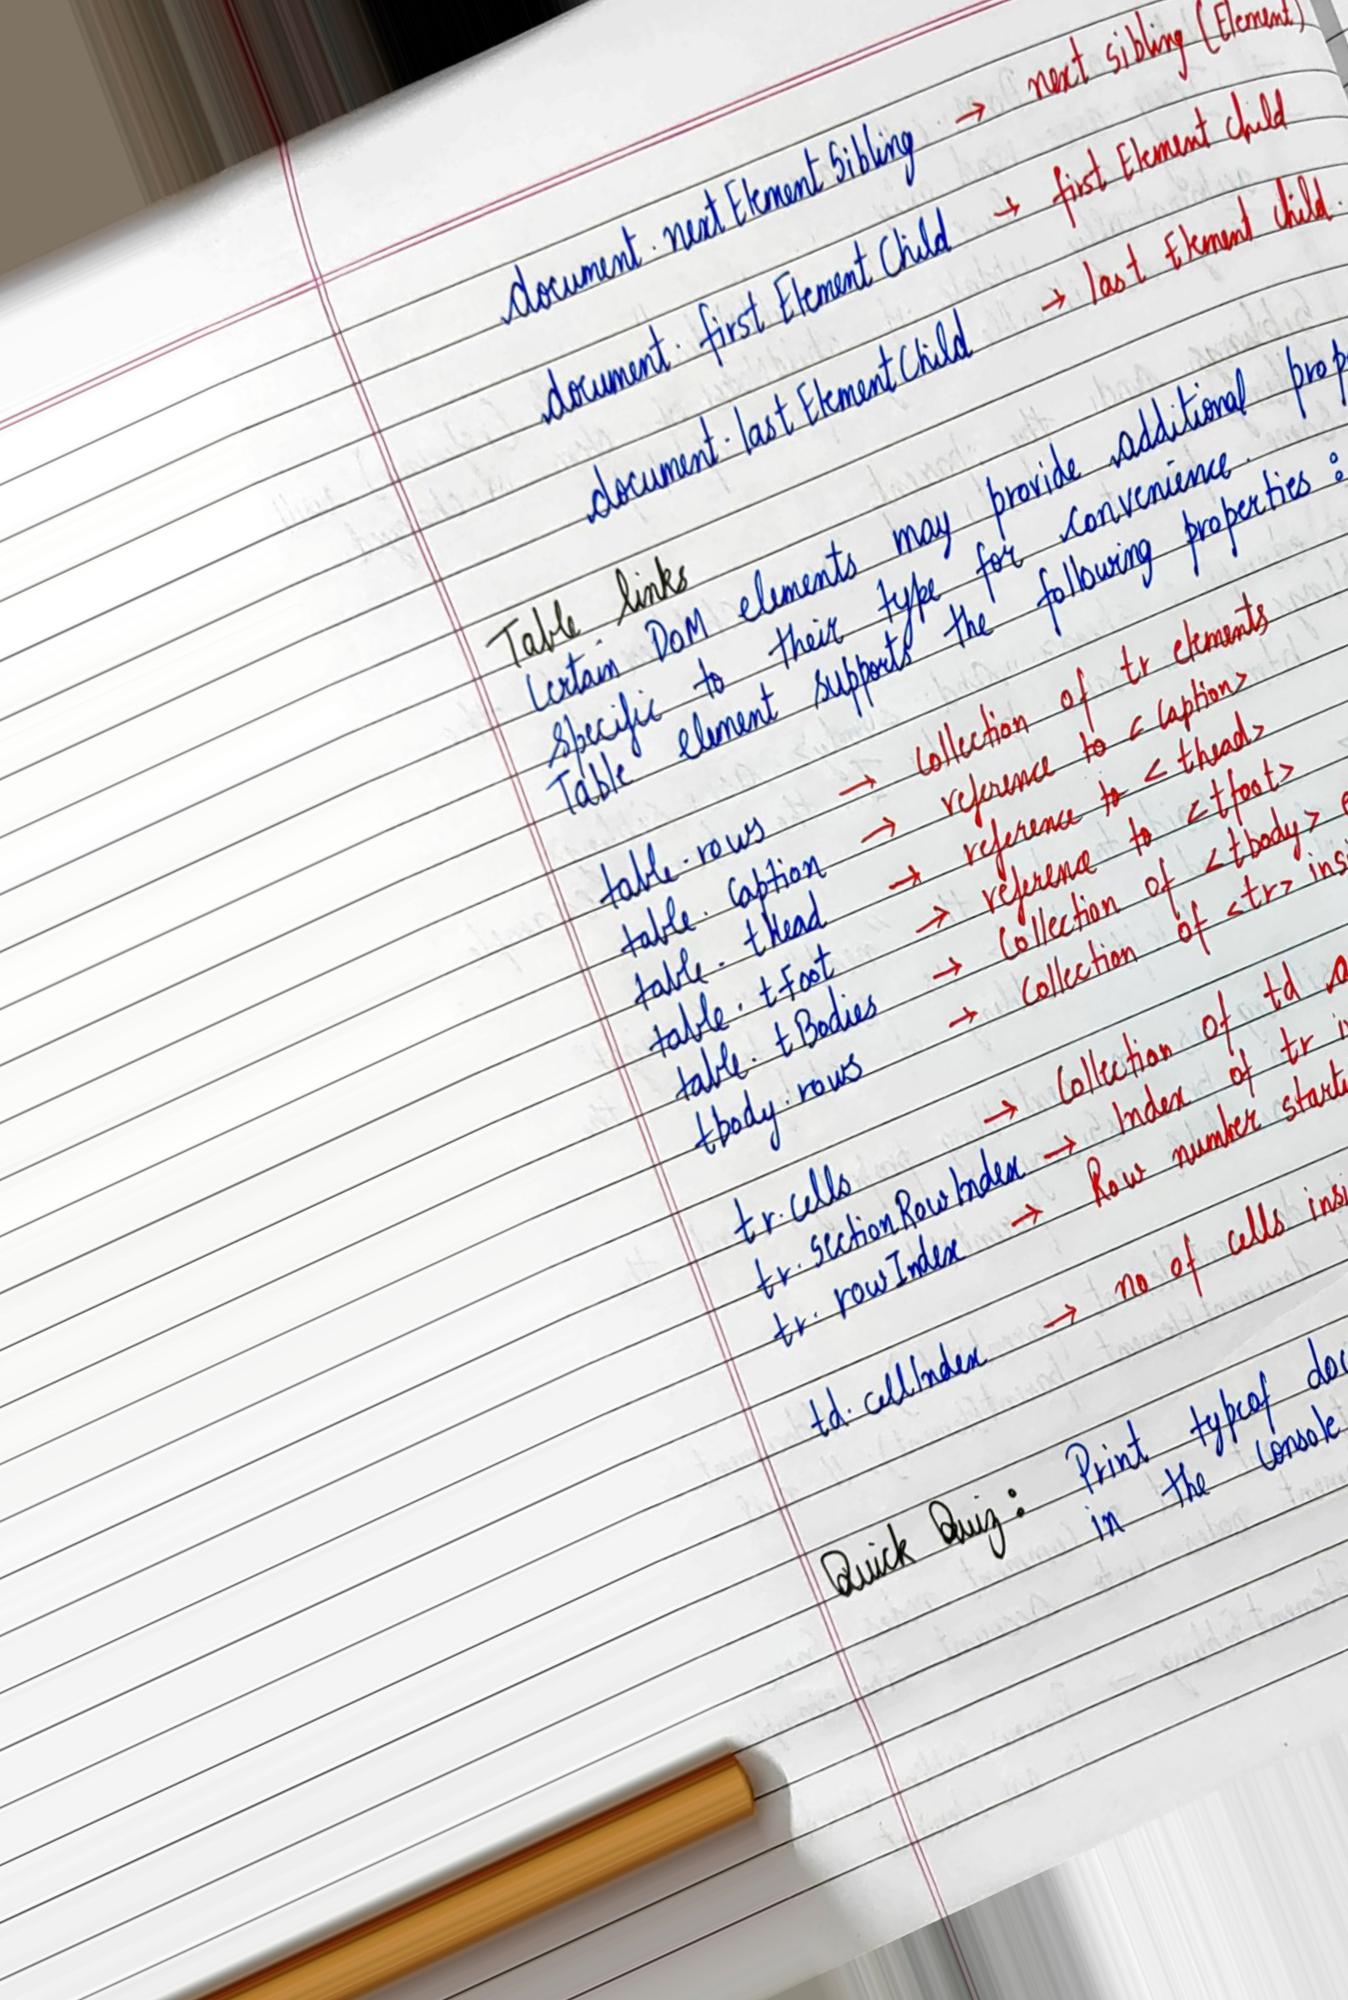 document.nextElementSibling → next sibling (Element)
document.firstElementChild → first Element child
document.lastElementChild → last Element child.
Table links
Certain DOM elements may provide additional prop
specific to their type for convenience.
Table element supports the following properties :
table.rows → collection of tr elements
table.caption → reference to <caption>
table.tHead → reference to <thead>
table.tFoot → reference to <tfoot>
table.tBodies → collection of <tbody>
tbody.rows → collection of <tr> insi
tr.cells → collection of td
tr.sectionRowIndex → Index of tr i
tr.rowIndex → Row number starti
td.cellIndex → no of cells insi
Quick Quiz: Print typeof doc
in the console